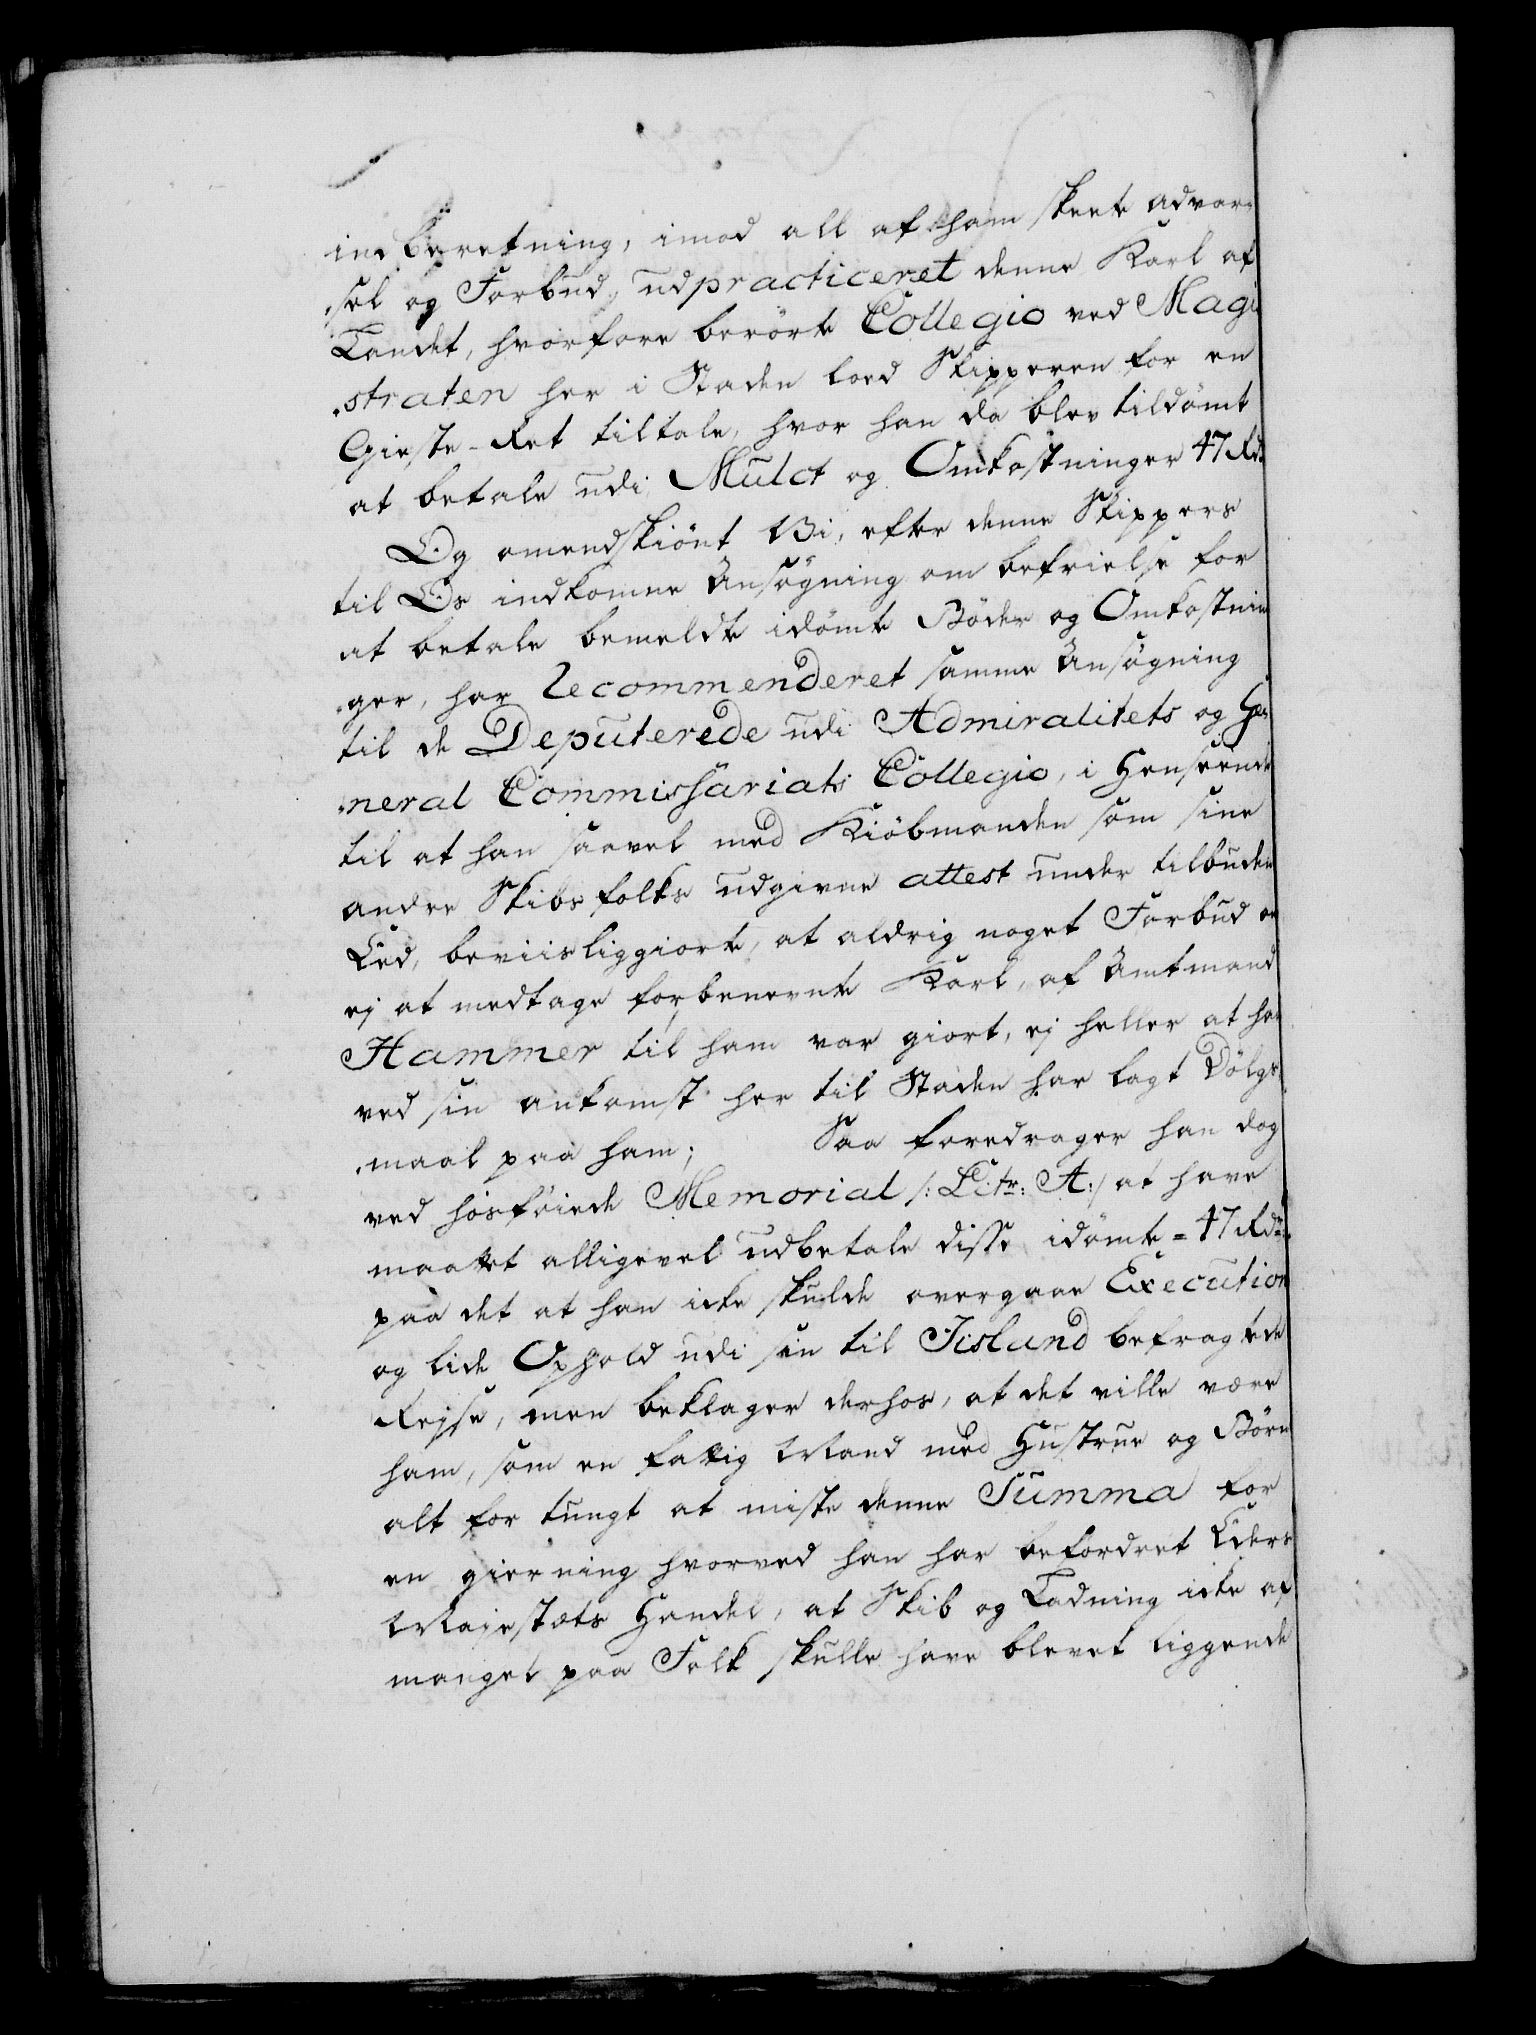 indberetning, imod all af ham skeete advar-
sel og Forbud, udpracticeret denne Karl af
Landet, hvorfore berörte Collegio ved Magi
straten her i Staden loed Skipperen for en
Gieste-Ret tiltale, hvor han da blev tildömt
at betale udi Mulct og Omkostninger 47 Rdr
Og omendskiönt Vi, efter denne Skippers
til Os indkomne Ansögning om befrielse for
at betale bemeldte idömte Böder og Omkostnin
ger, har Recommenderet samme Ansögning
til de Deputerede udi Admiralitets og Ge
neral Commissariats Collegio, i Henseende
til at han saavel med Kiöbmanden som sine
andre Skibsfolks udgivne attest under tilbuden
Eed, beviisliggiorte, at aldrig noget Forbud om
ej at medtage forbenevnte Karl, af Amtmand
Hammer til ham var giort, ej heller at han
ved sin ankomst her til Staden har lagt Dölgs
maal paa ham; Saa foredrager han dog
ved hosföiede Memorial /: Litr: A:/ at have
maattet alligevel udbetale disse idömte = 47 Rdr
paa det at han icke skulde overgaae Execution
og lide Ophold udi sin til Iisland befragtede
Rejse, men beklager derhos, at det ville være
ham, som en fattig Mand med Hustrue og Börn
alt for tungt at miste denne Summa for
en gierning hvorved han har befordret Eders
Majestæts Handel, at Skib og Ladning icke af
mangel paa Folk skulle have blevet liggende